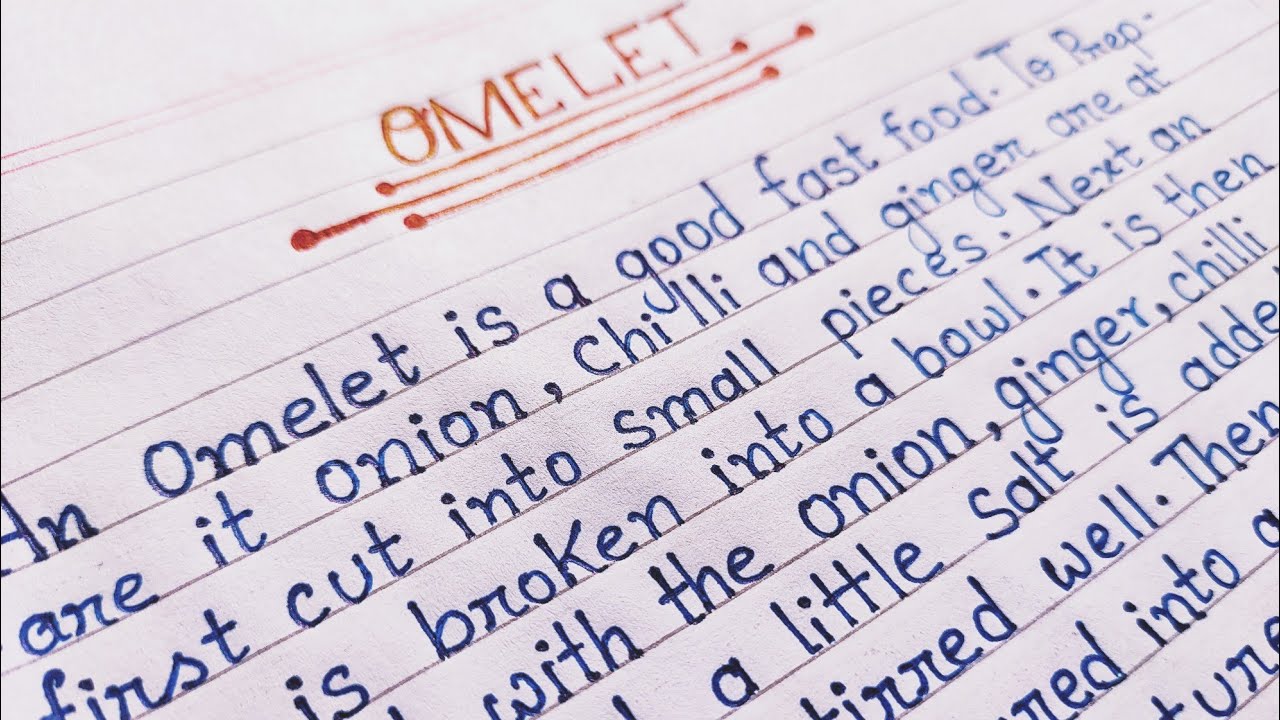 OMELET
An Omelet is a good fast food. To Prep-
are it onion, chilli and ginger are at
first cut into small pieces. Next an
is broken into a bowl. It is then
with the onion, ginger, chilli
a little Salt is
well. Then
into a